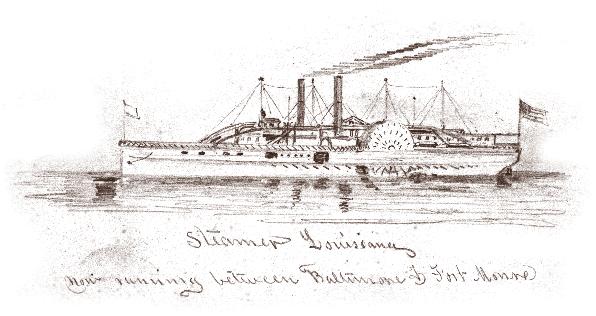 Steamer Louisiana
now running between Baltimore & Fort Monroe